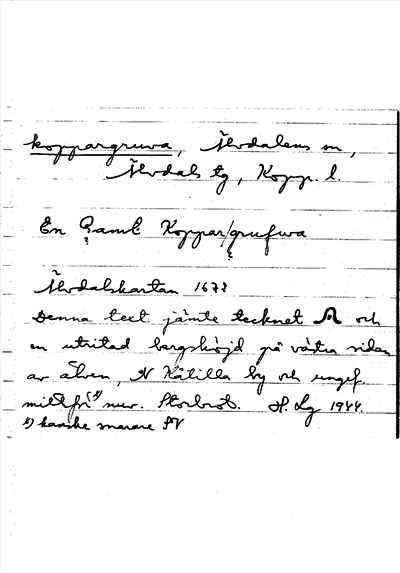 koppargruva, Älvdalens sn,
Älvdals tg, Kopp. l.
En Gamb Koppar/grufwa
? ?
Älvdalskartan 1678
Denna text jämte tecknet och
en utritad bergshöjd på västra sidan
av älven, N Kåtilla by och ungef.
mitt för¹⁾ nuv. Storbrot. H. Lg 1944.
1) kanske snarare SV